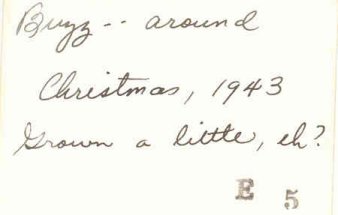 Buzz -- around
Christmas, 1943
Grown a little, eh?
E 5